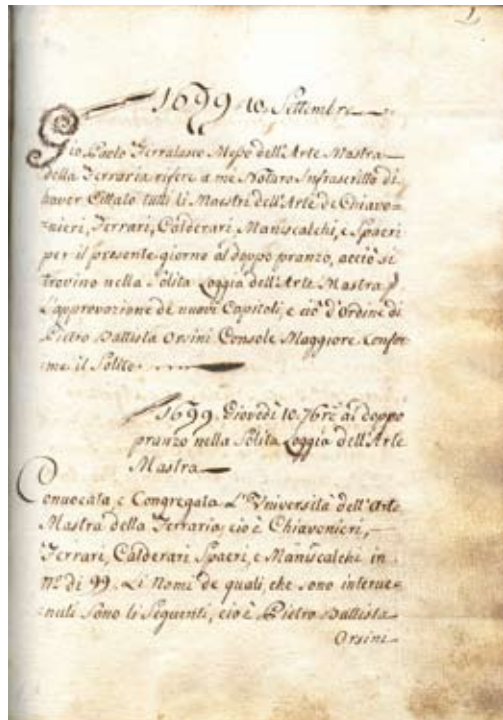 1
1699 10 Settembre
Gio Paolo Ferralasco Messo dell'Arte Mastra
della Ferraria riferc a me Notaro Infrascritto di
haver Cittato tutti li Maestri dell'Arte de Chiavo=
=nieri, Ferrari, Calderari, Maniscalchi, e Spaeri
per il presente giorno al doppo pranzo, acciò si
trovino nella Solita Loggia dell'Arte Mastra p
L'approvazione de nuovi Capitoli, e ciò d'Ordine di
Pietro Battista Orsini Console Maggiore Confor
=me il Solito
1699. Giovedì 10. 7bre al doppo
pranzo nella Solita Loggia dell'Arte
Mastra
Convocata, e Congregata L'Università dell'Arte
Mastra della Ferraria, cioè Chiavonieri,
Ferrari, Calderari Spaeri, e Maniscalchi in
N.º di 99. Li Nomi de quali, che sono interve=
=nuti Sono li Seguenti, cioè Pietro Battista
Orsini